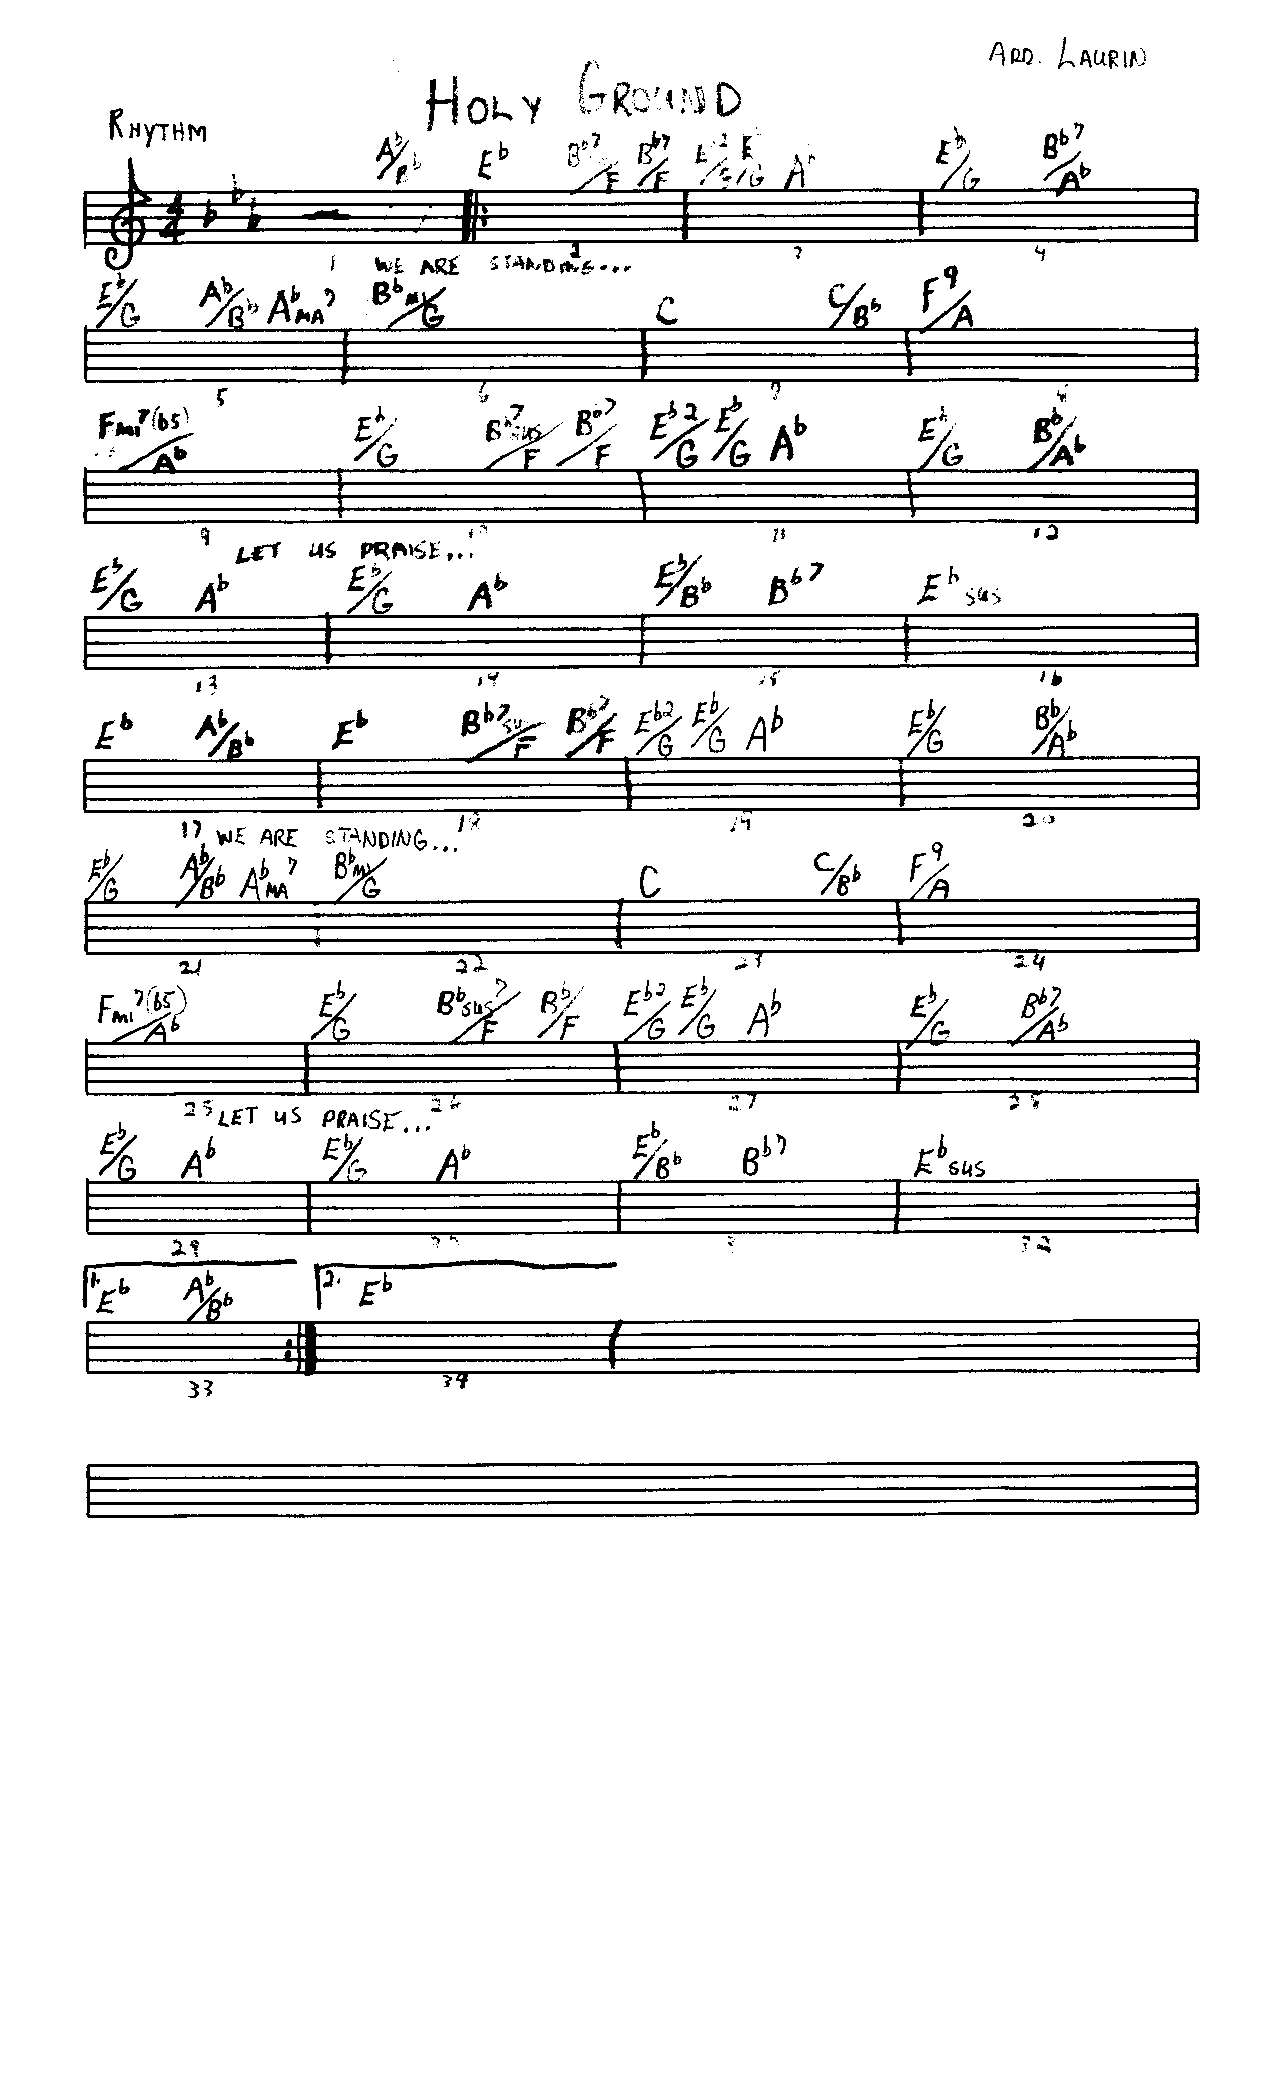 ARD. LAURIN
HOLY GROUND
RHYTHM
4/4
A♭/B♭ E♭ B♭7/F B♭7/F A♭ E♭/G B♭7/A♭
1 2 3 4
WE ARE STANDING...
E♭/G A♭/B♭ A♭MA7 B♭MI/G C C/B♭ F9/A
5 6 7
FMI7(b5)/A♭ E♭/G B♭7SUS/F B♭7/F E♭2/G E♭/G A♭ E♭/G B♭/A♭
9 10 11 12
LET US PRAISE...
E♭/G A♭ E♭/G A♭ E♭/B♭ B♭7 E♭SUS
13 14 15 16
E♭ A♭/B♭ E♭ B♭7SU/F B♭7/F E♭2/G E♭/G A♭ E♭/G B♭/A♭
17 18 19 20
WE ARE STANDING...
E♭/G A♭/B♭ A♭MA7 B♭MI/G C C/B♭ F9/A
21 22 23 24
FMI7(b5)/A♭ E♭/G B♭SUS7/F B♭/F E♭2/G E♭/G A♭ E♭/G B♭7/A♭
25 26 27 28
LET US PRAISE...
E♭/G A♭ E♭/G A♭ E♭/B♭ B♭7 E♭SUS
29 32
1. E♭ A♭/B♭ 2. E♭
33 34